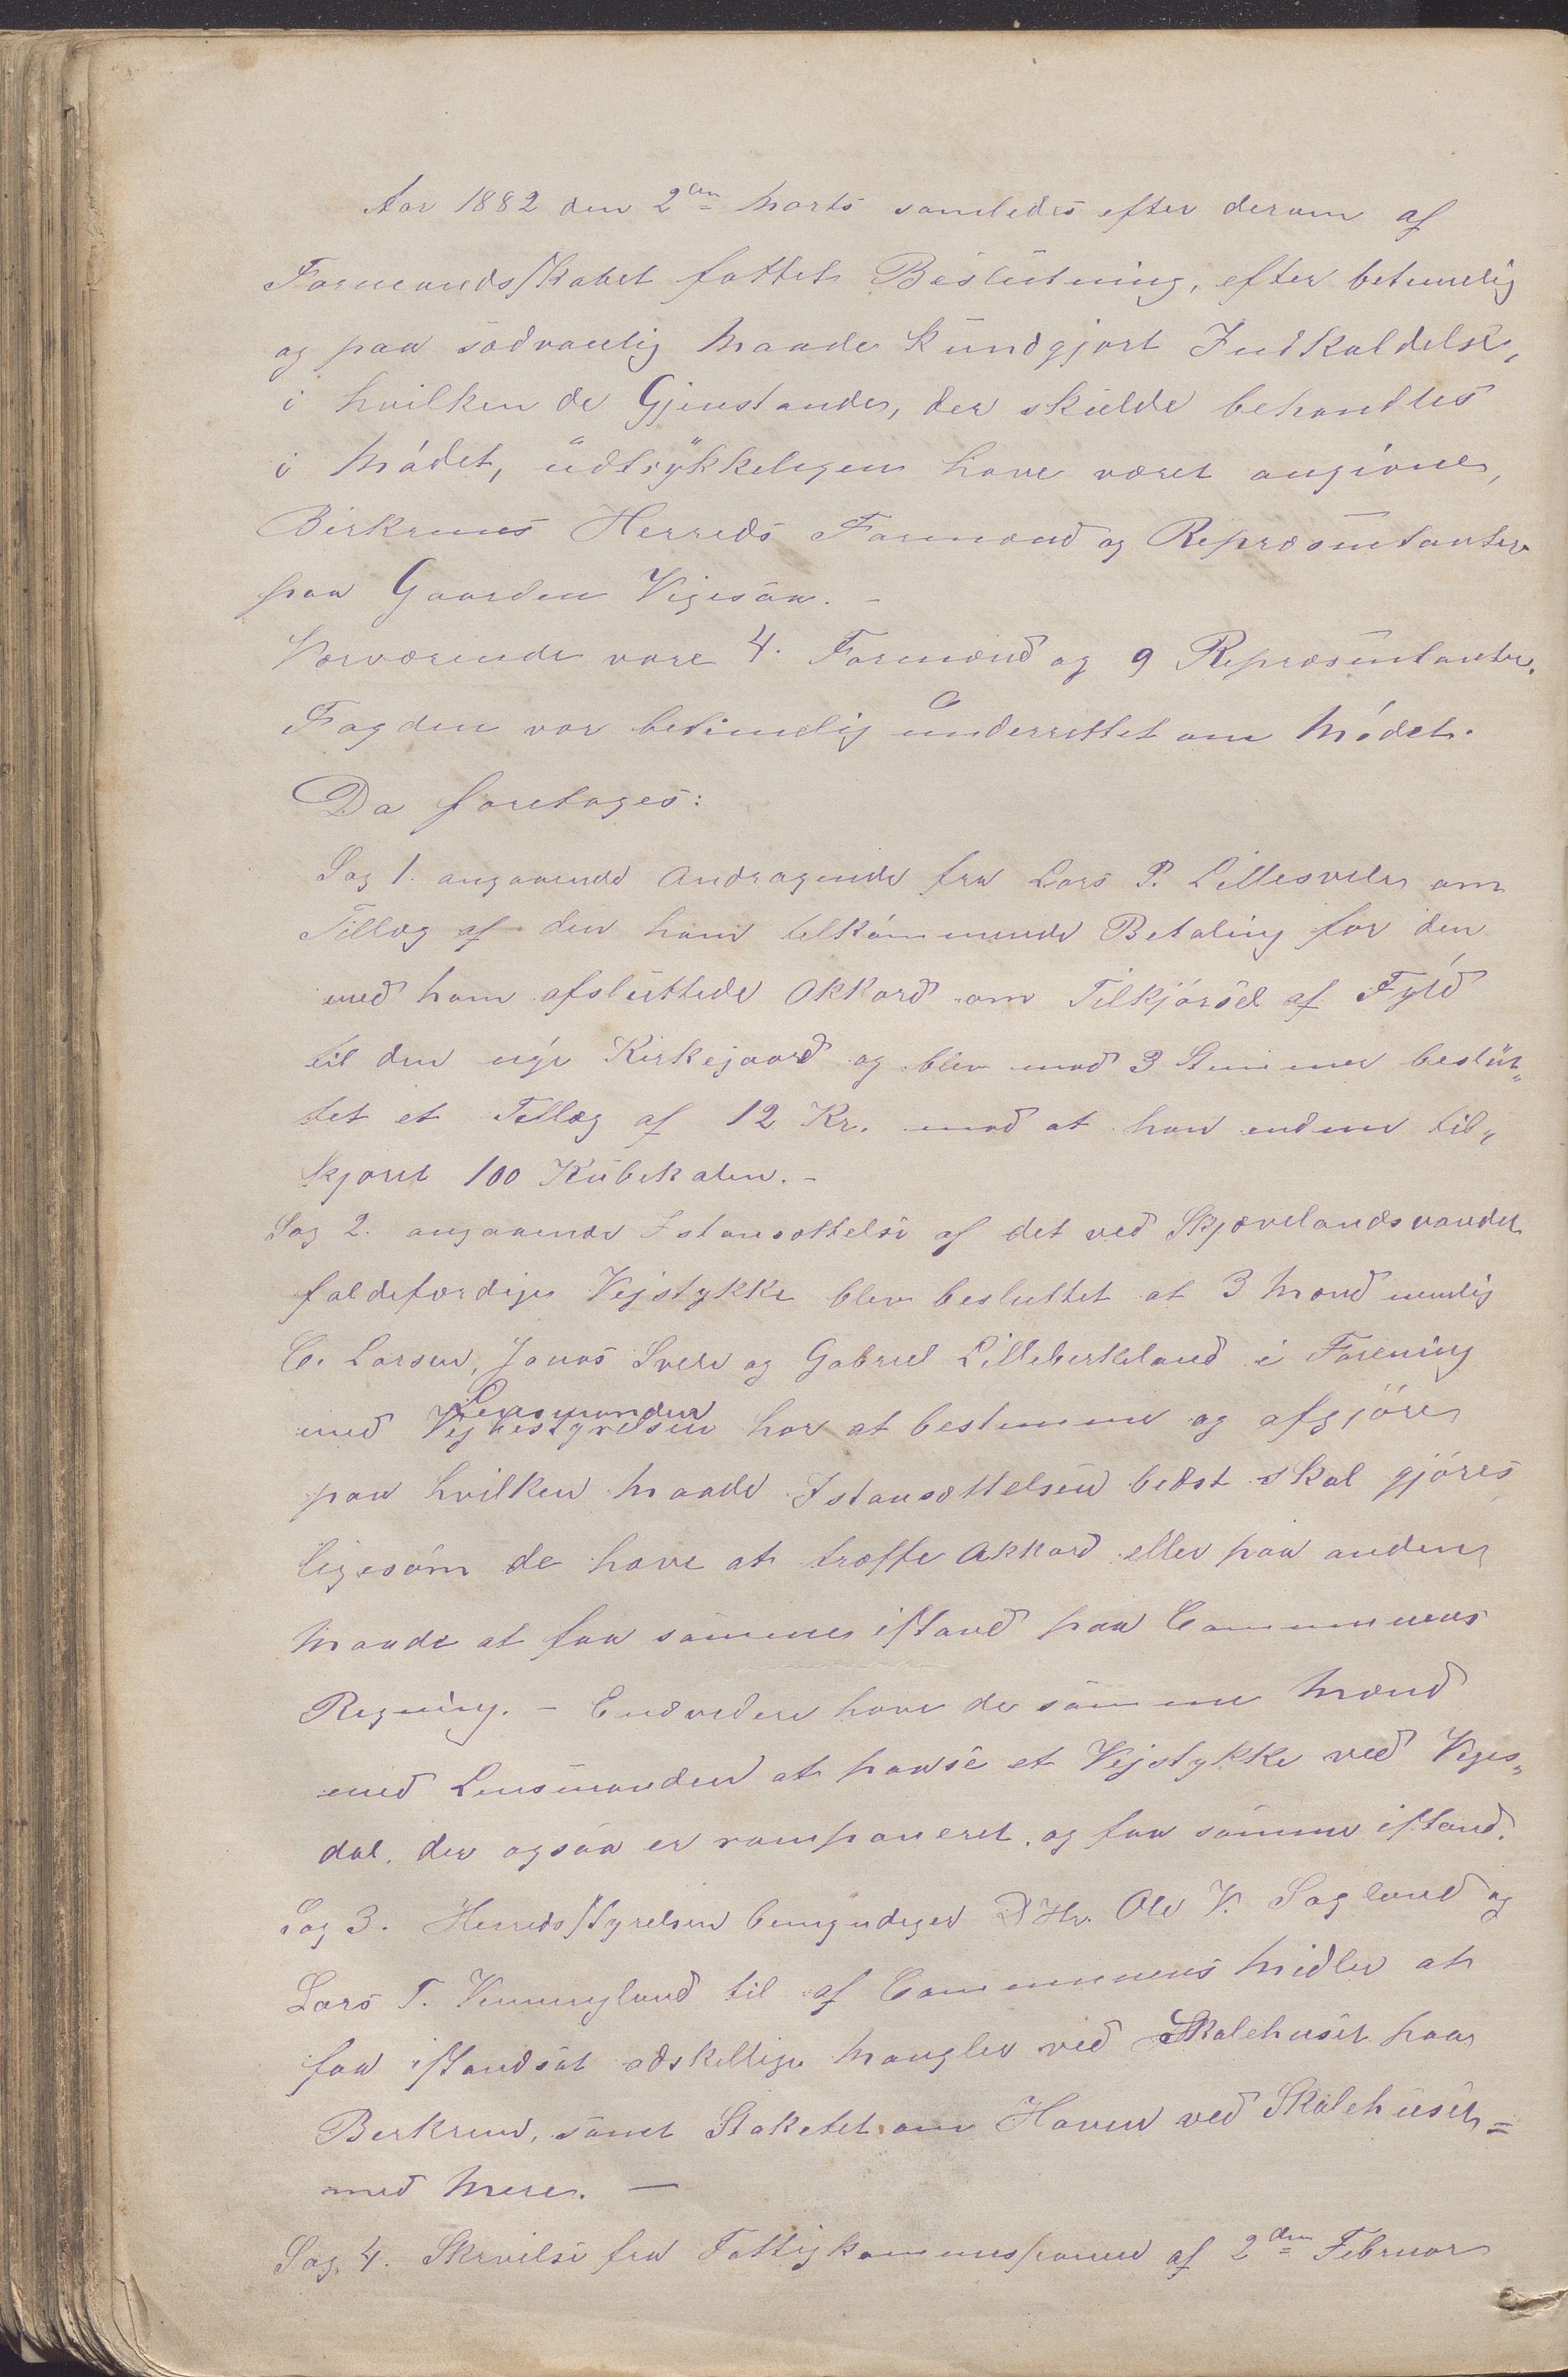 Aar 1882 den 2den Marts samledes efter derom af
Formandskabet fattet Beslutning, efter betimelig
og paa sædvanlig Maade kundgjort Indkaldelse,
i hvilken de Gjenstande, der skulde behandles
i Mødet, udtrykkeligen have været angivne,
Birkrems Herreds Formænd og Repræsentanter
paa Gaarden Vigesaa. -
Nærværende vare 4. Formænd og 9 Repræsentanter.
Fogden var betimelig underrettet om Mødet.
Da foretages:
Sag 1. angaaende Andragende fra Lars P. Littesvele om
Tillæg af den ham tilkommende Betaling for den
med ham afsluttede Akkord om Tilkjørsel af Fyld
til den nye Kirkegaard og blev mod 3 Stemmer beslut„
tet et Tillæg af 12 Kr. mod at han endnu til„
kjører 100 Kubikalen. -
Sag 2. angaaende Istansættelse af det ved Skjævelandsvandet
faldefærdige Vejstykke blev besluttet at 3 Mænd nemlig
C. Larsen, Jonas Svele og Gabriel Lillebirkeland i Forening
med Lensmanden har at bestemme og afgjøre
paa hvilken Maade Istansættelsen bedst skal gjøres
ligesom de have at træffe Akkord eller paa anden
Maade at faa samme istand paa Communens
Regning. - Endvidere have de samme Mænd
med Lensmanden at paase et Vejstykke ved Viges„
dal, der ogsaa er ramponeret, og faa samme istand.
Sag 3. Herredsstyrelsen bemyndiger D'Hr. Ole V. Sagland og
Lars T. Vinningland til af Communens Midler at
faa istandsat adskillige Mangler ved Skolehuset paa
Berkrem, samt Staketet om Haven ved Skolehuset =
med Mere. —
Sag 4. Skrivelse fra Fattigkommissionen af 2den Februar